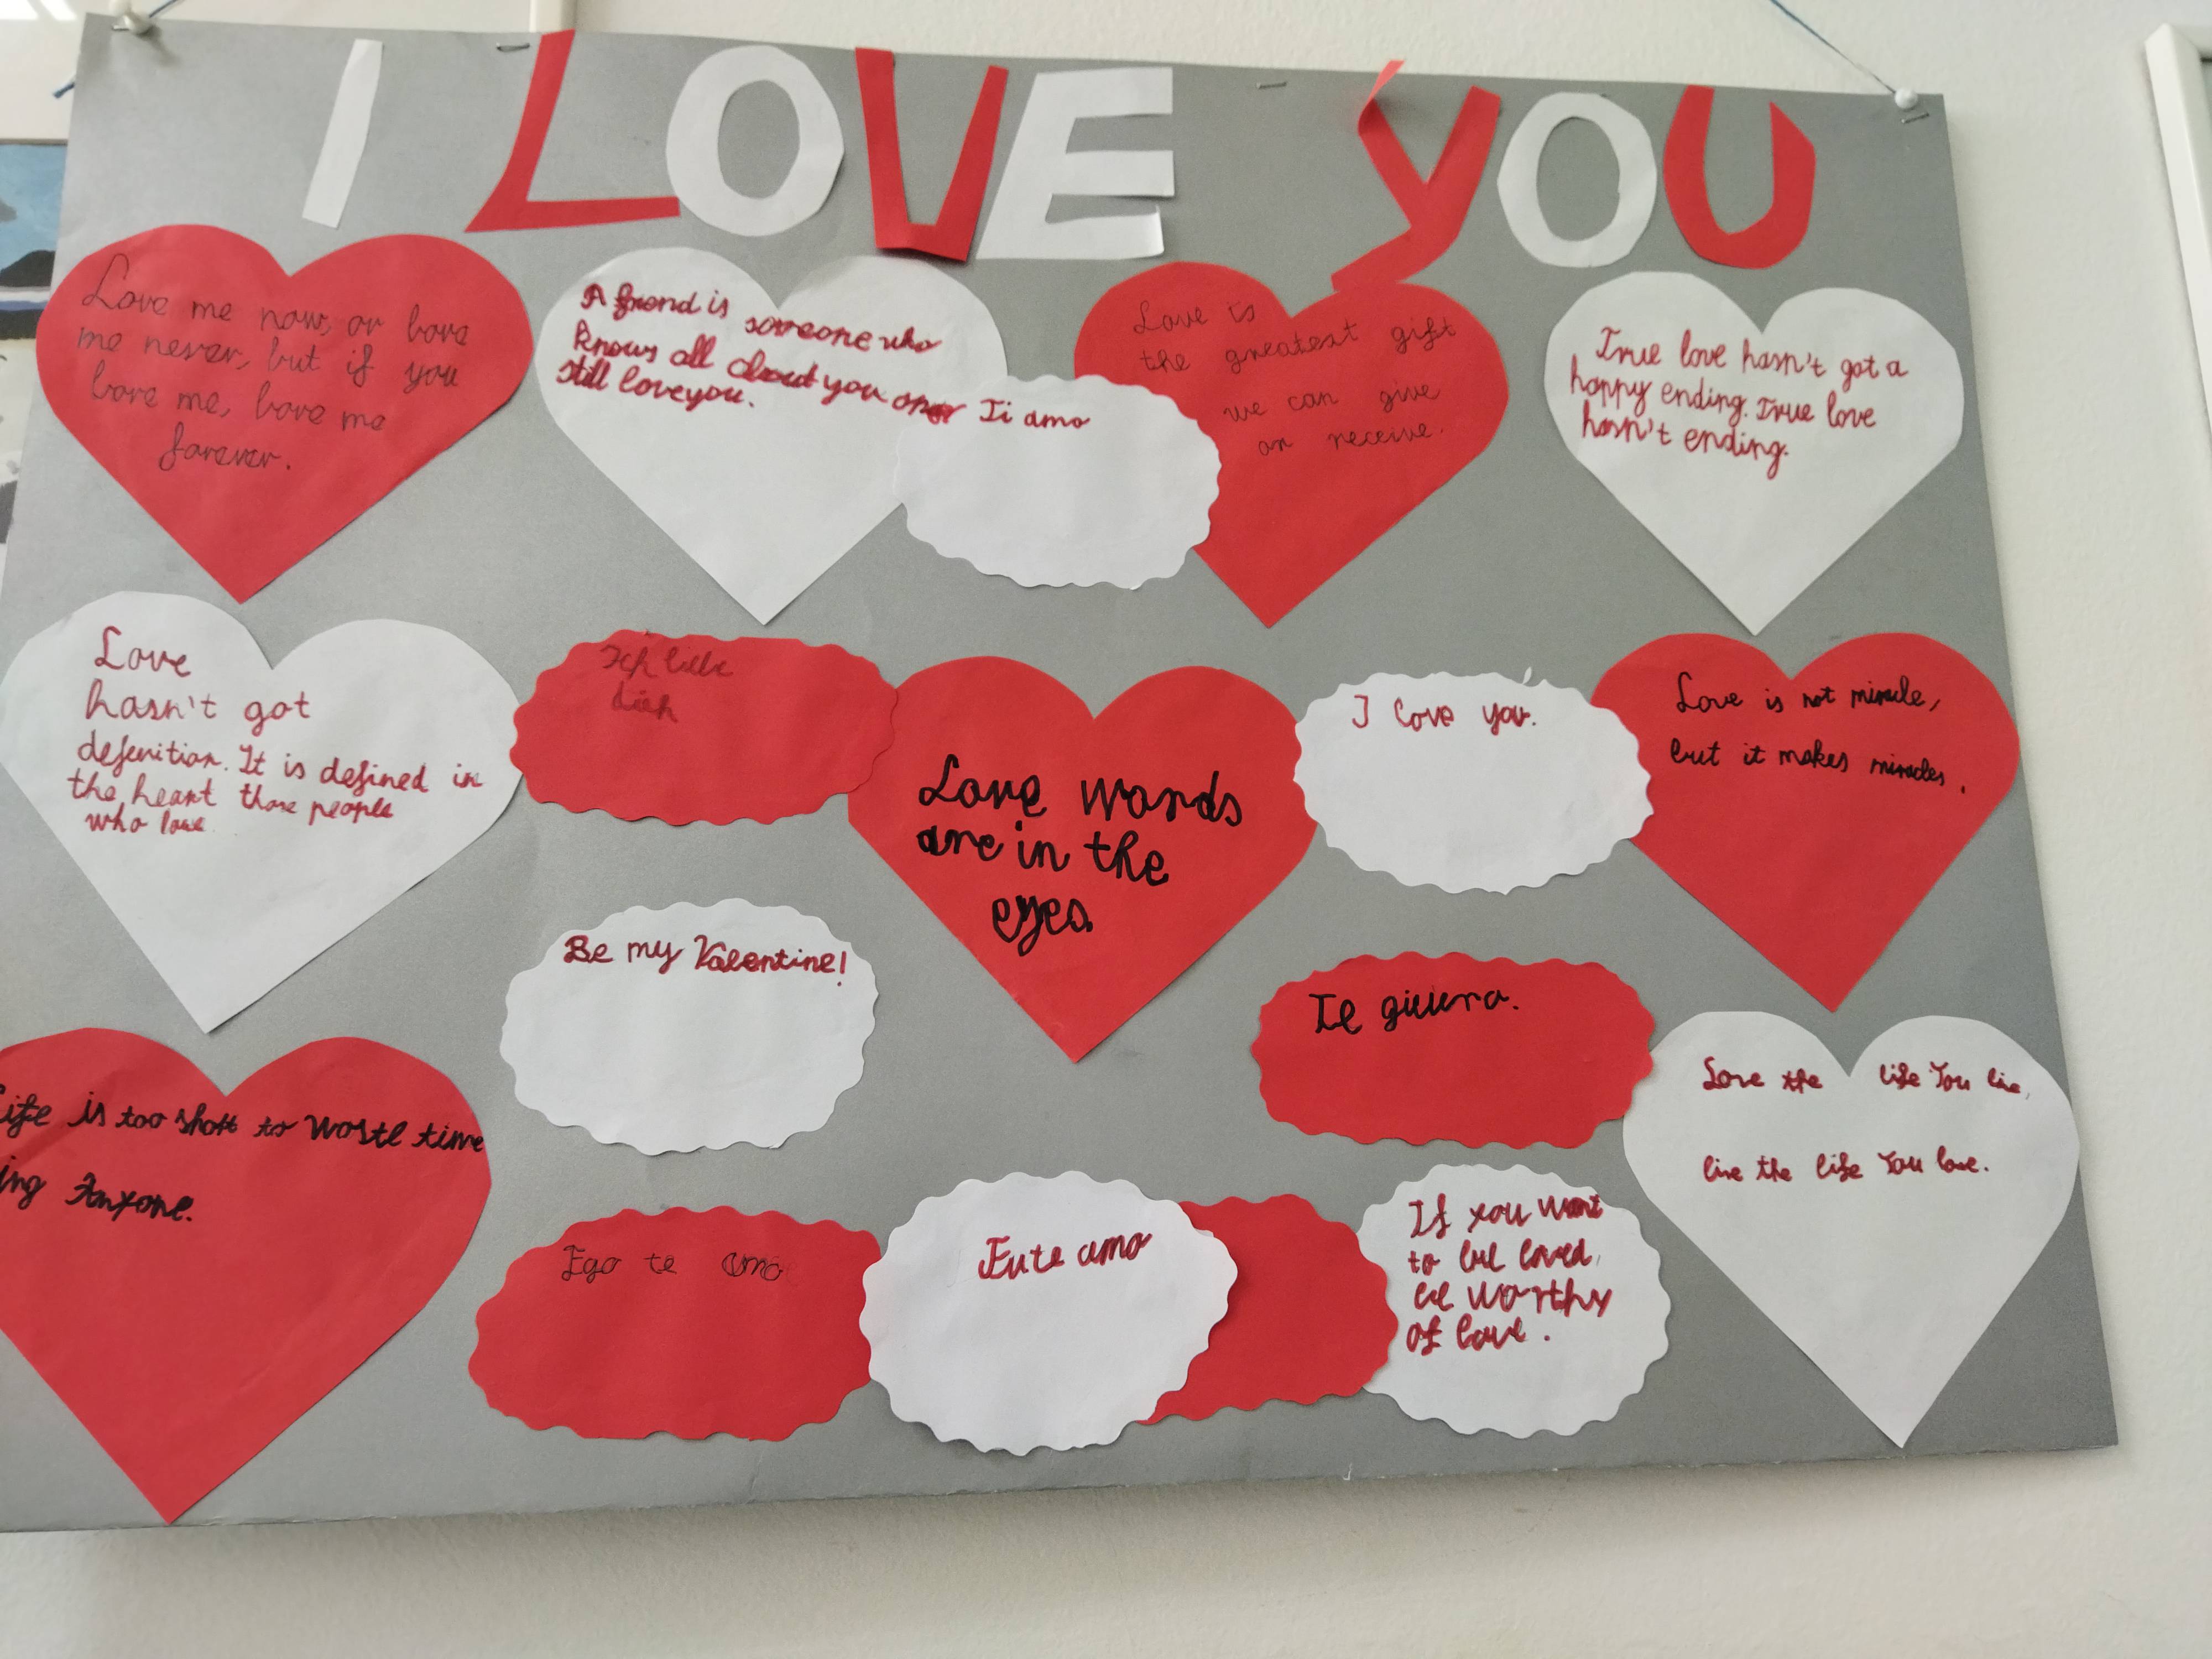 I LOVE YOU
Love me now, or love
me never, but if you
love me, love me
forever.
A friend is someone who
knows all about you and
still love you.
Ti amo
Love is
the greatest gift
we can give
or receive.
True love hasn't got a
happy ending. True love
hasn't ending.
Love
hasn't got
defenition. It is defined in
the heart those people
who love
Ich liebe
dich
Love words
are in the
eyes.
I love you.
Love is not miracle,
but it makes miracles.
Be my Valentine!
Te
Life is too short to waste time
ing Anyone.
Love the life You live,
live the life You love.
Ego te amo
Eu te amo
If you want
to be loved,
be worthy
of love.